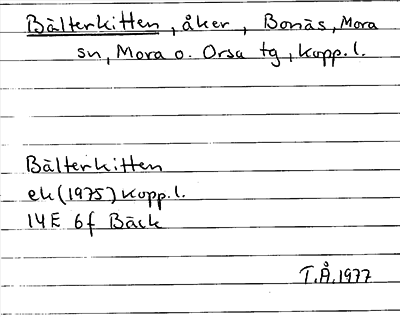 Bälterkitten, åker, Bonäs, Mora
sn, Mora o. Orsa tg, Kopp.l.
Bälterkitten
ek (1975) Kopp.l.
14E 6f Bäck
T.Å. 1977